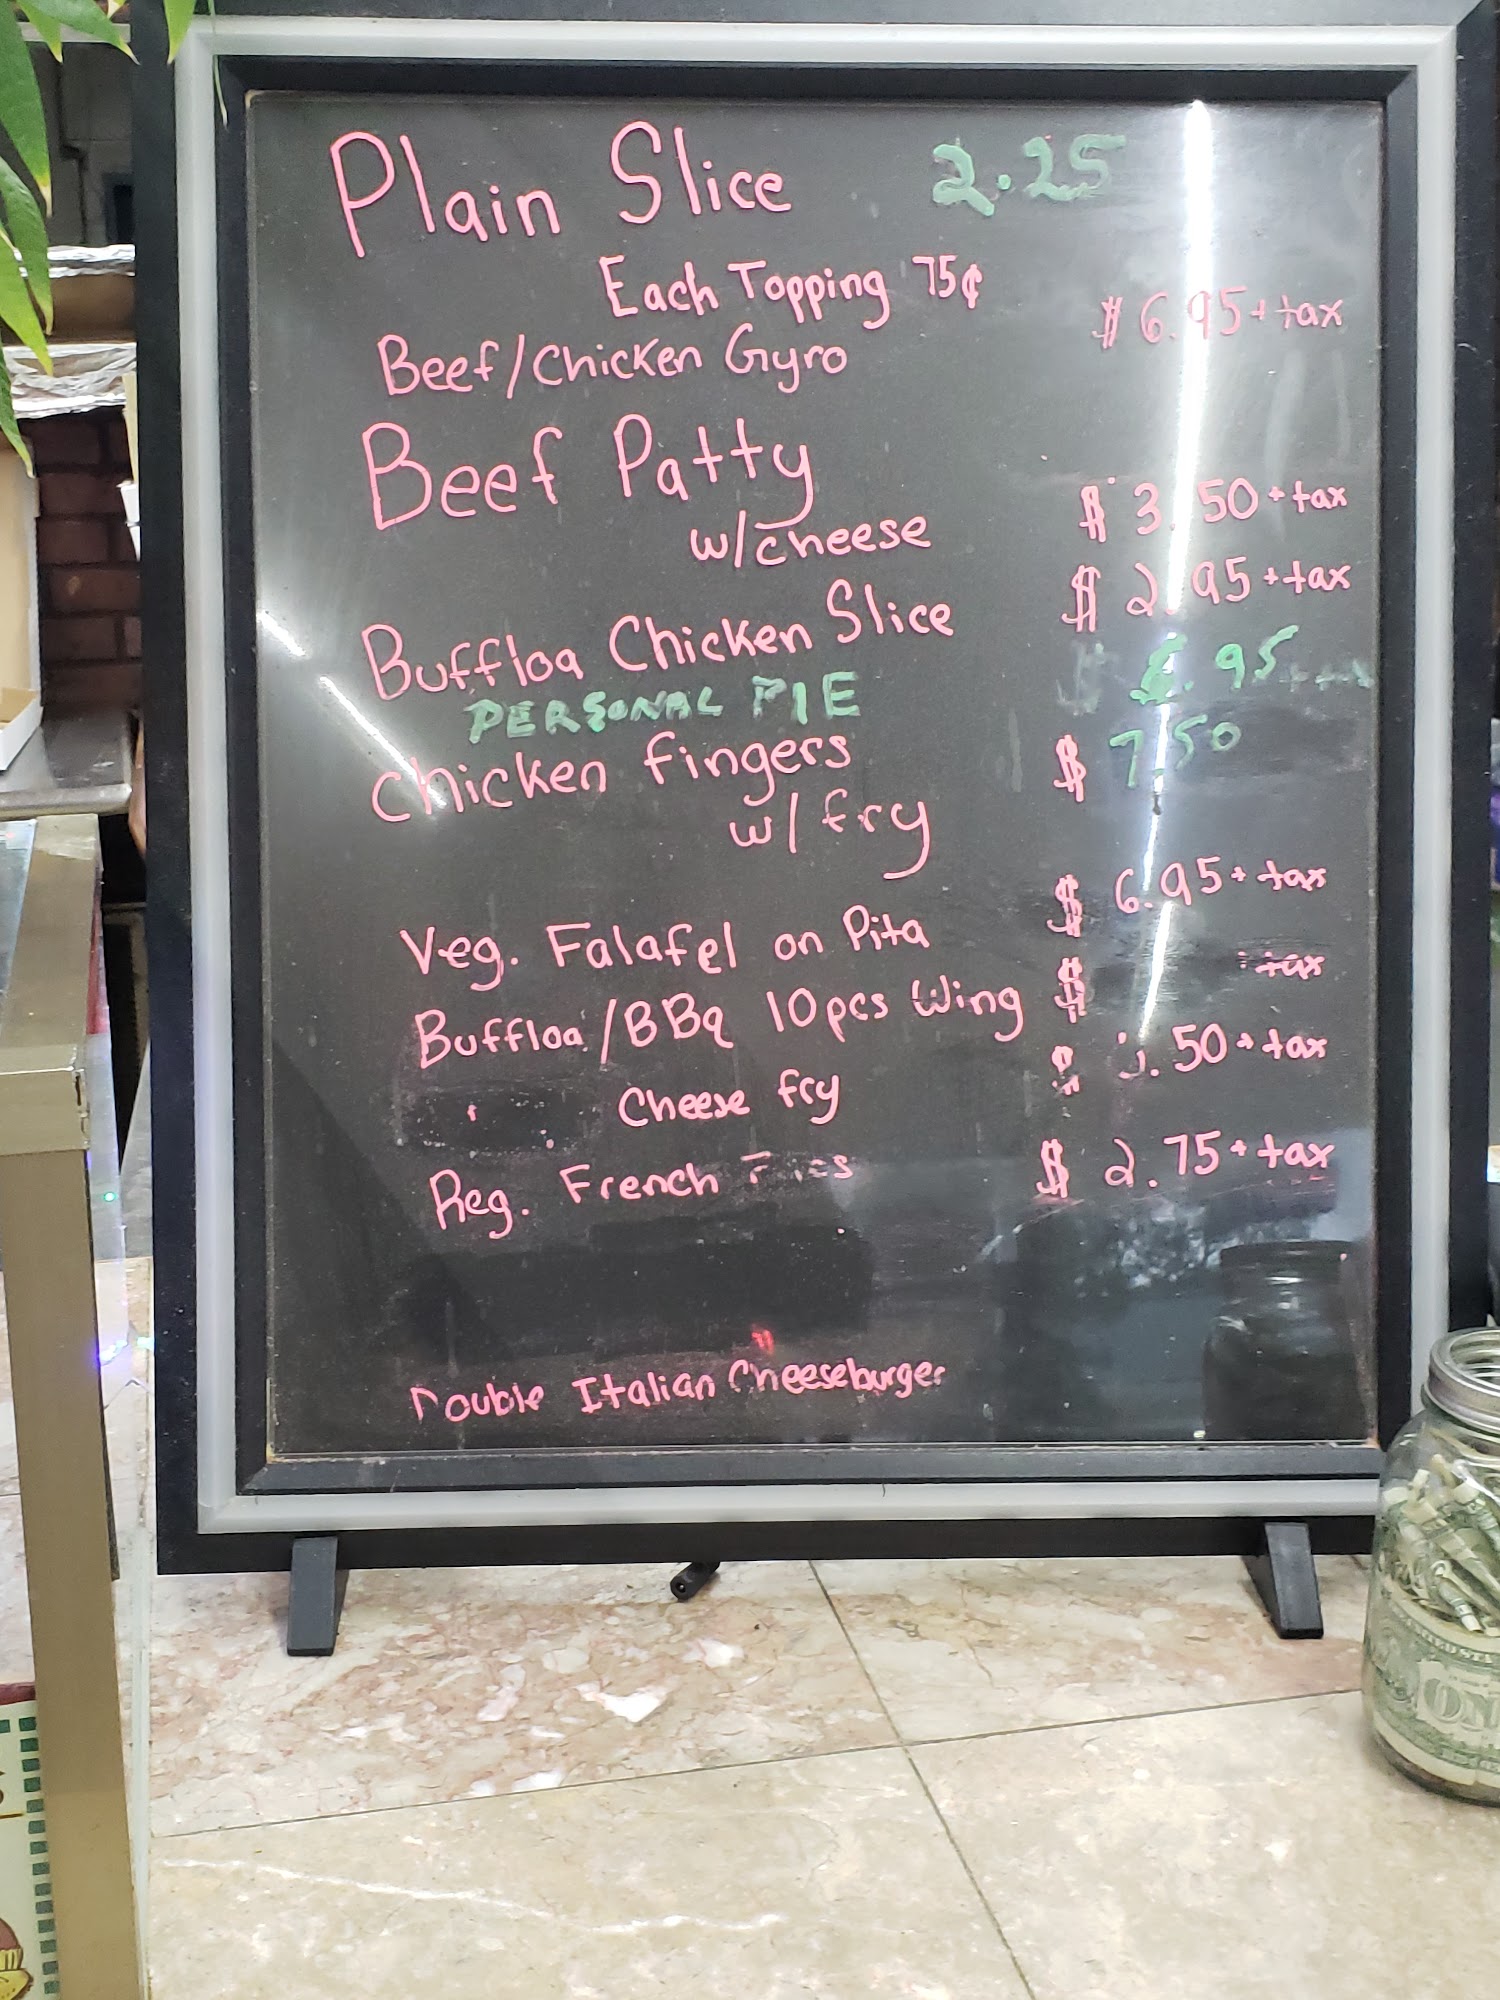 Plain Slice 2.25
Each Topping 75¢
Beef/Chicken Gyro $ 6.95 + tax
Beef Patty
w/cheese $ 3.50 + tax
Buffloa Chicken Slice $ 2.95 + tax
PERSONAL PIE $ .95 + tax
Chicken fingers $ 7.50
w/ fry
Veg. Falafel on Pita $ 6.95 + tax
Buffloa/BBq 10pcs Wing $ + tax
Cheese fry $ .50 + tax
Reg. French Fries $ 2.75 + tax
Double Italian Cheeseburger
ONE